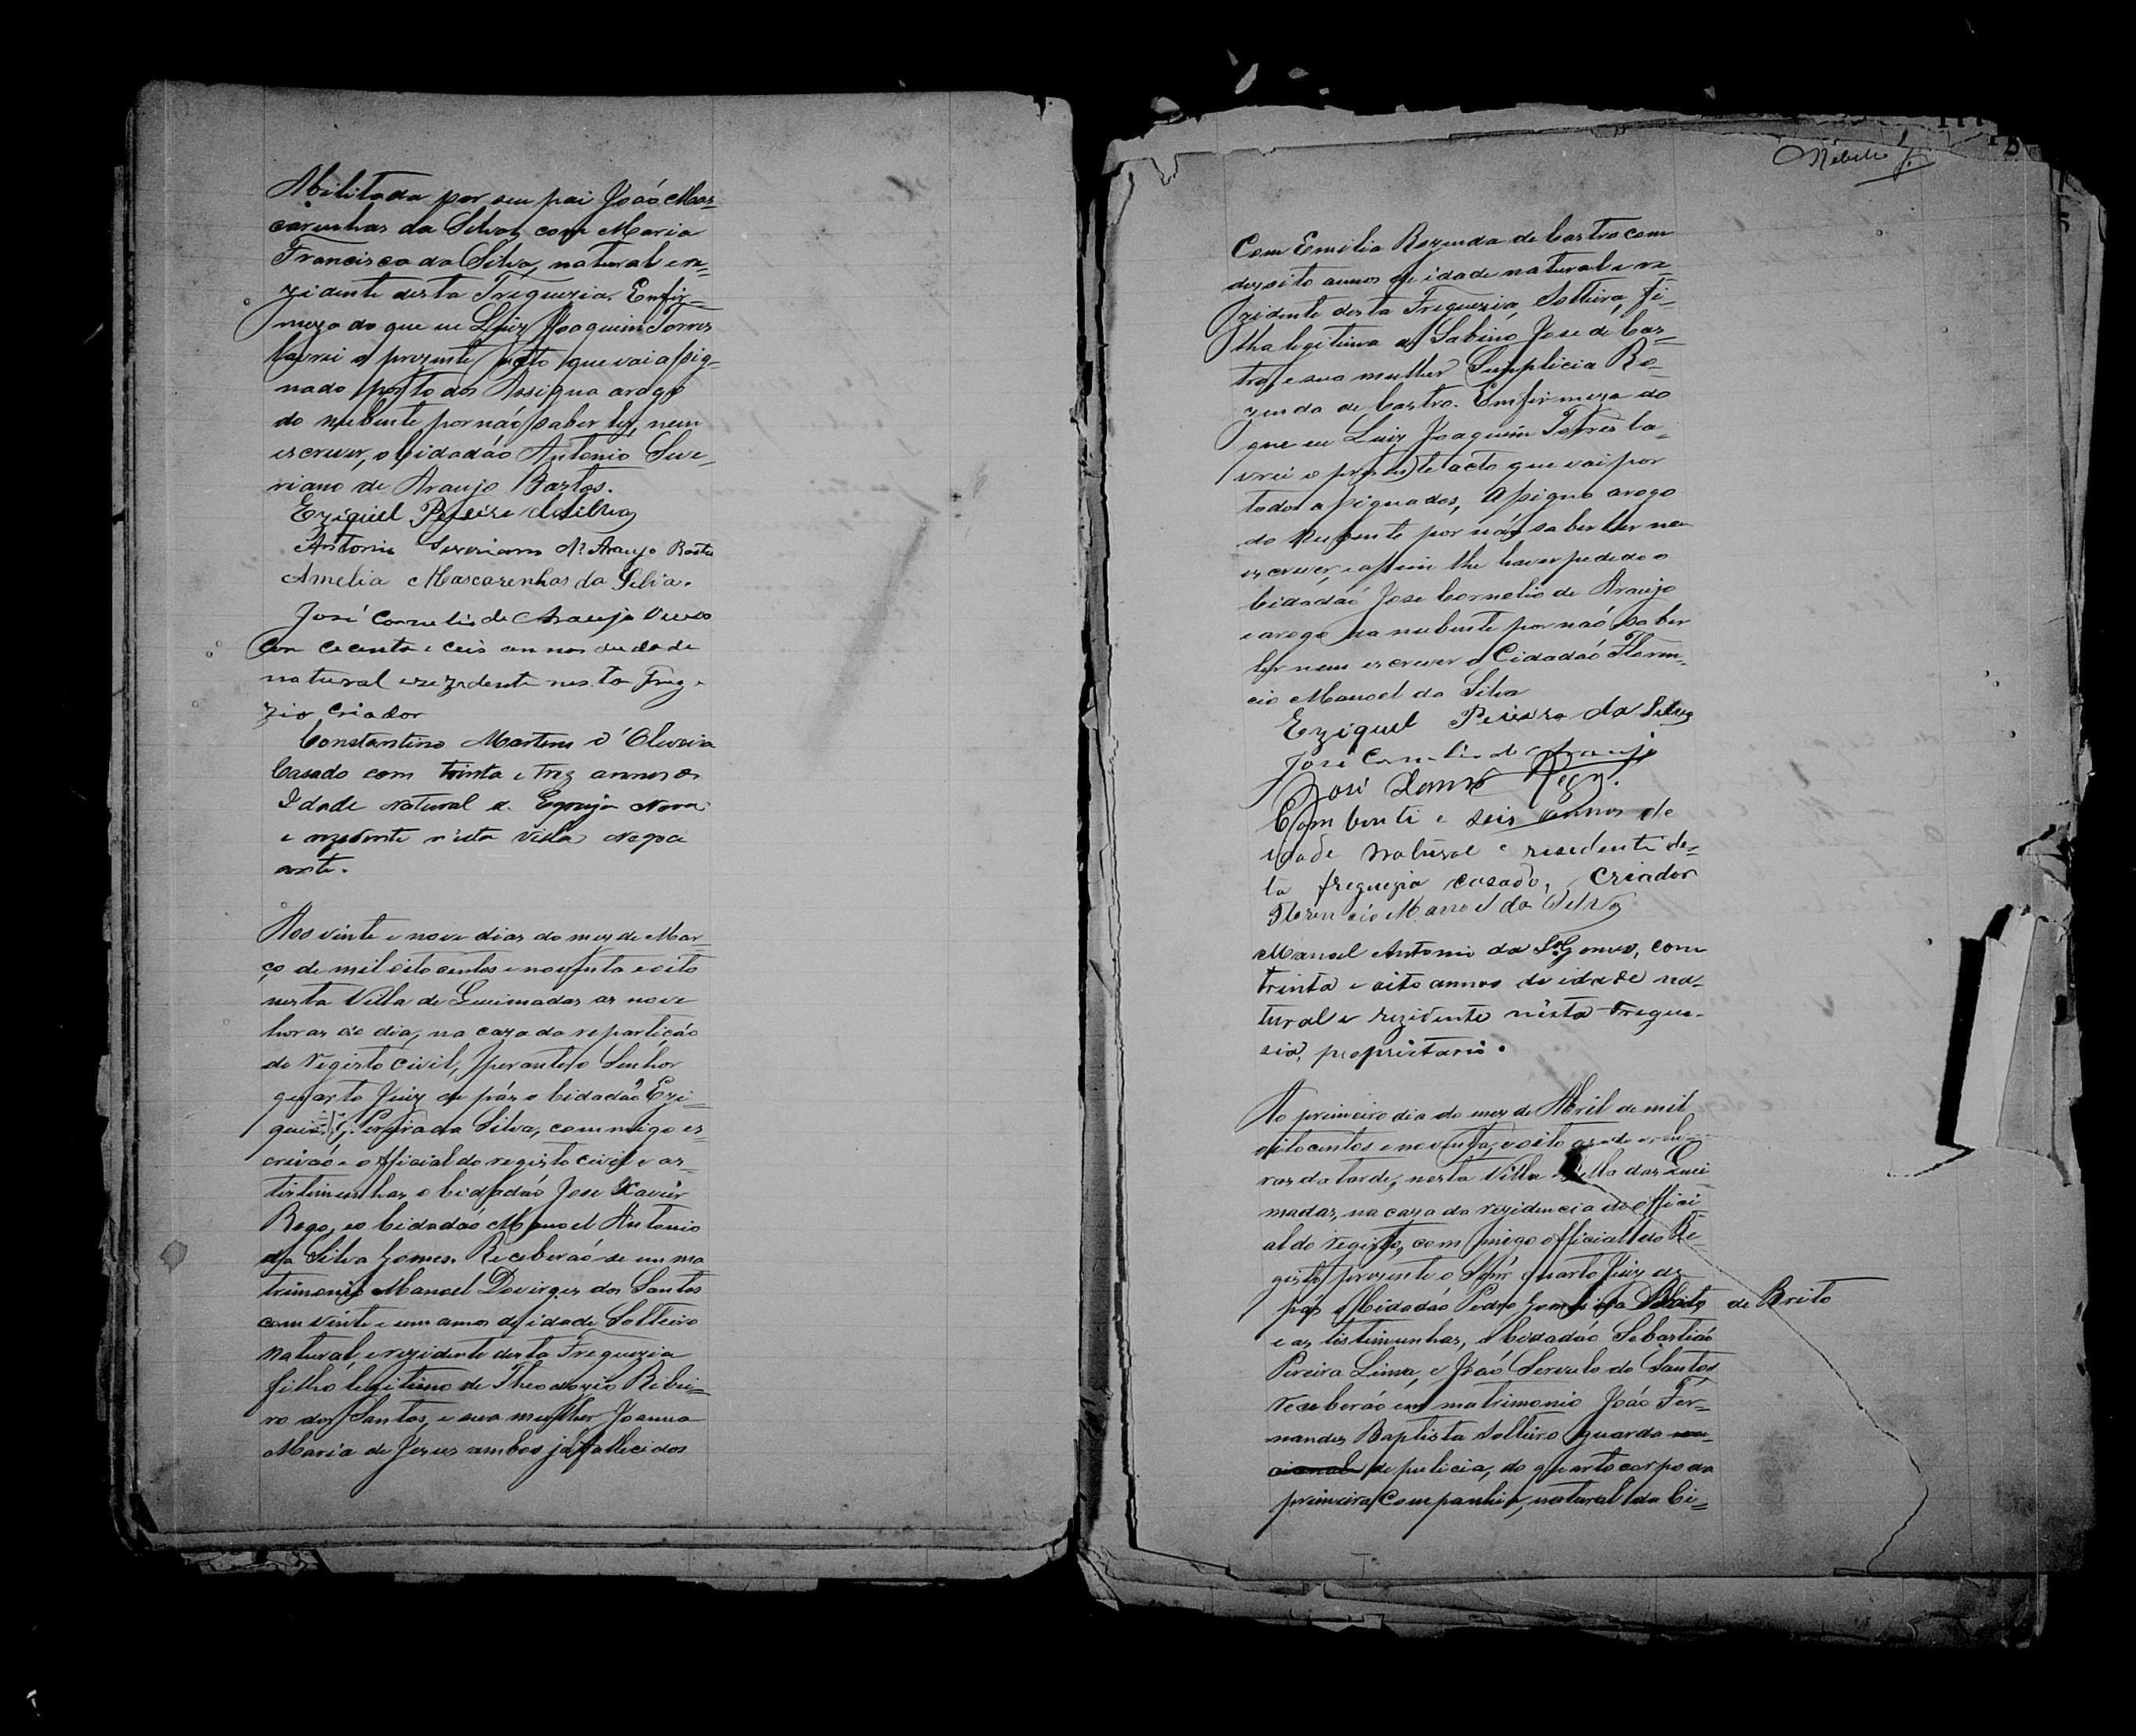 Abilitada por seu pai João Mas-
carenhas da Silva, com Maria
Francisca da Silva, natural e re-
zidente desta Freguezia. Emfir-
meza do que eu Luiz Joaquim Torres
lavrei o prezente acto que vai assig-
nado por todos Assigna arogo
do nubente por não saber ler, nem
escrever, o Cidadão Antonio Seve-
riano de Araujo Bastos.
Eziquiel Pereira da Silva
Antonio Severiano de Araujo Bastos
Amelia Mascarenhas da Silva.
José Cornelio de Araujo Viuvo
Con cecenta e ceis annos de idade
natural e rezidente nesta Freg
zia Criador
Constantino Martins d'Oliveira
Casado com trinta e trez annos de
Idade natural de Egreja Nova
e rezedente n'esta Villa negoci
ante.
Aos vinte e nove dias do mez de Mar-
ço de mil oito centos e noventa e oito
nesta Villa de Queimadas as nove
horas do dia, na caza da repartição
do registo civil, perante o Senhor
quarto Juiz de páz o Cidadão Ezi-
quiel Pereira da Silva, commigo es-
crivão e official do registo civil e as
testimunhas o Cidadão Jose Xavier
Rego, e o Cidadão Manoel Antonio
da Silva Gomes. Receberaõ-se em ma
trimonio Manoel Davirges dos Santos
com vinte e um annos de idade Solteiro
natural, e rezidente desta Freguezia
filho legitimo de Theodozio Ribei-
ro dos Santos, e sua mulher Joanna
Maria de Jezus ambos já fallecidos
Com Emilia Rozenda de Castro com
dezoito annos de idade natural e re-
zidente desta Freguezia, Solteira, fi-
lha legitima de Sabino Jose de Cas-
tro, e sua mulher Simplicia Ro-
zenda de Castro. Emfirmeza do
que eu Luiz Joaquim Torres la-
vrei o prezente acto que vai por
todos assignados, Assigna arogo
do Nubente por não saber ler nem
escrever, e assim lhe haver pedido o
Cidadão Jose Cornelio de Araujo
e arogo da nubente por não saber
ler nem escrever o Cidadão Floren-
cio Manoel da Silva
Eziquel Pereira da Silva
José Cornelio de Araujo
José Xavier Rego.
Com vinti e seis annos de
idade natural e residente des-
ta freguezia casado, Criador
Florencio Manoel da Silva
Manoel Antonio da Sª Gomes, com
trinta e oito annos de idade na-
tural e rezidente nésta Fregue-
sia, proprietario.
Ao primeiro dia do mez de Abril de mil
oitocentos e noventa, e oito
ras da tarde, nesta Villa Bella das Quei
madas, na caza da rezidencia do offici-
al do registo, com migo official do Re-
gisto, prezente o Snr quarto Juiz de
páz o Cidadão Pedro Gomes de Brito
e as testimunhas, o Cidadão Sebastião
Pereira Lima, e João Servulo do Santos,
receberão em matrimonio João Fer-
nandes Baptista solteiro guarda na-
cional de policia, do quarto corpo da
primeira Companhia, natural da Ci-